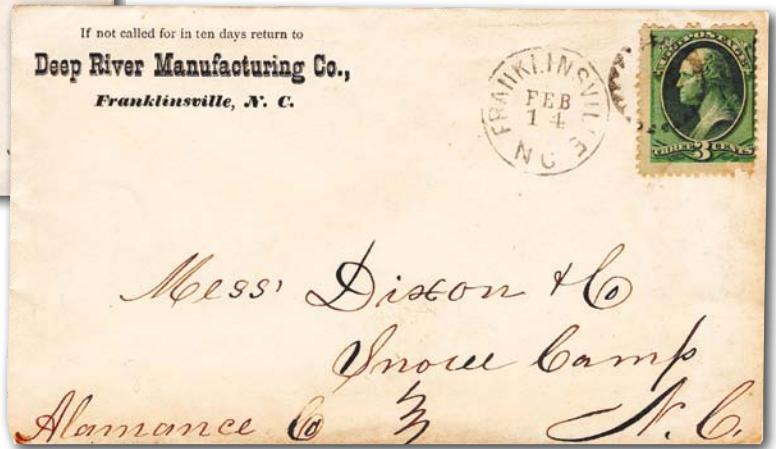 If not called for in ten days return to
Deep River Manufacturing Co.,
Franklinsville, N. C.
FRANKLINSVILLE
FEB
14
N C
U.S. POSTAGE
THREE 3 CENTS
Mess' Dixon & Co
Snow Camp
Alamance Co N. C.